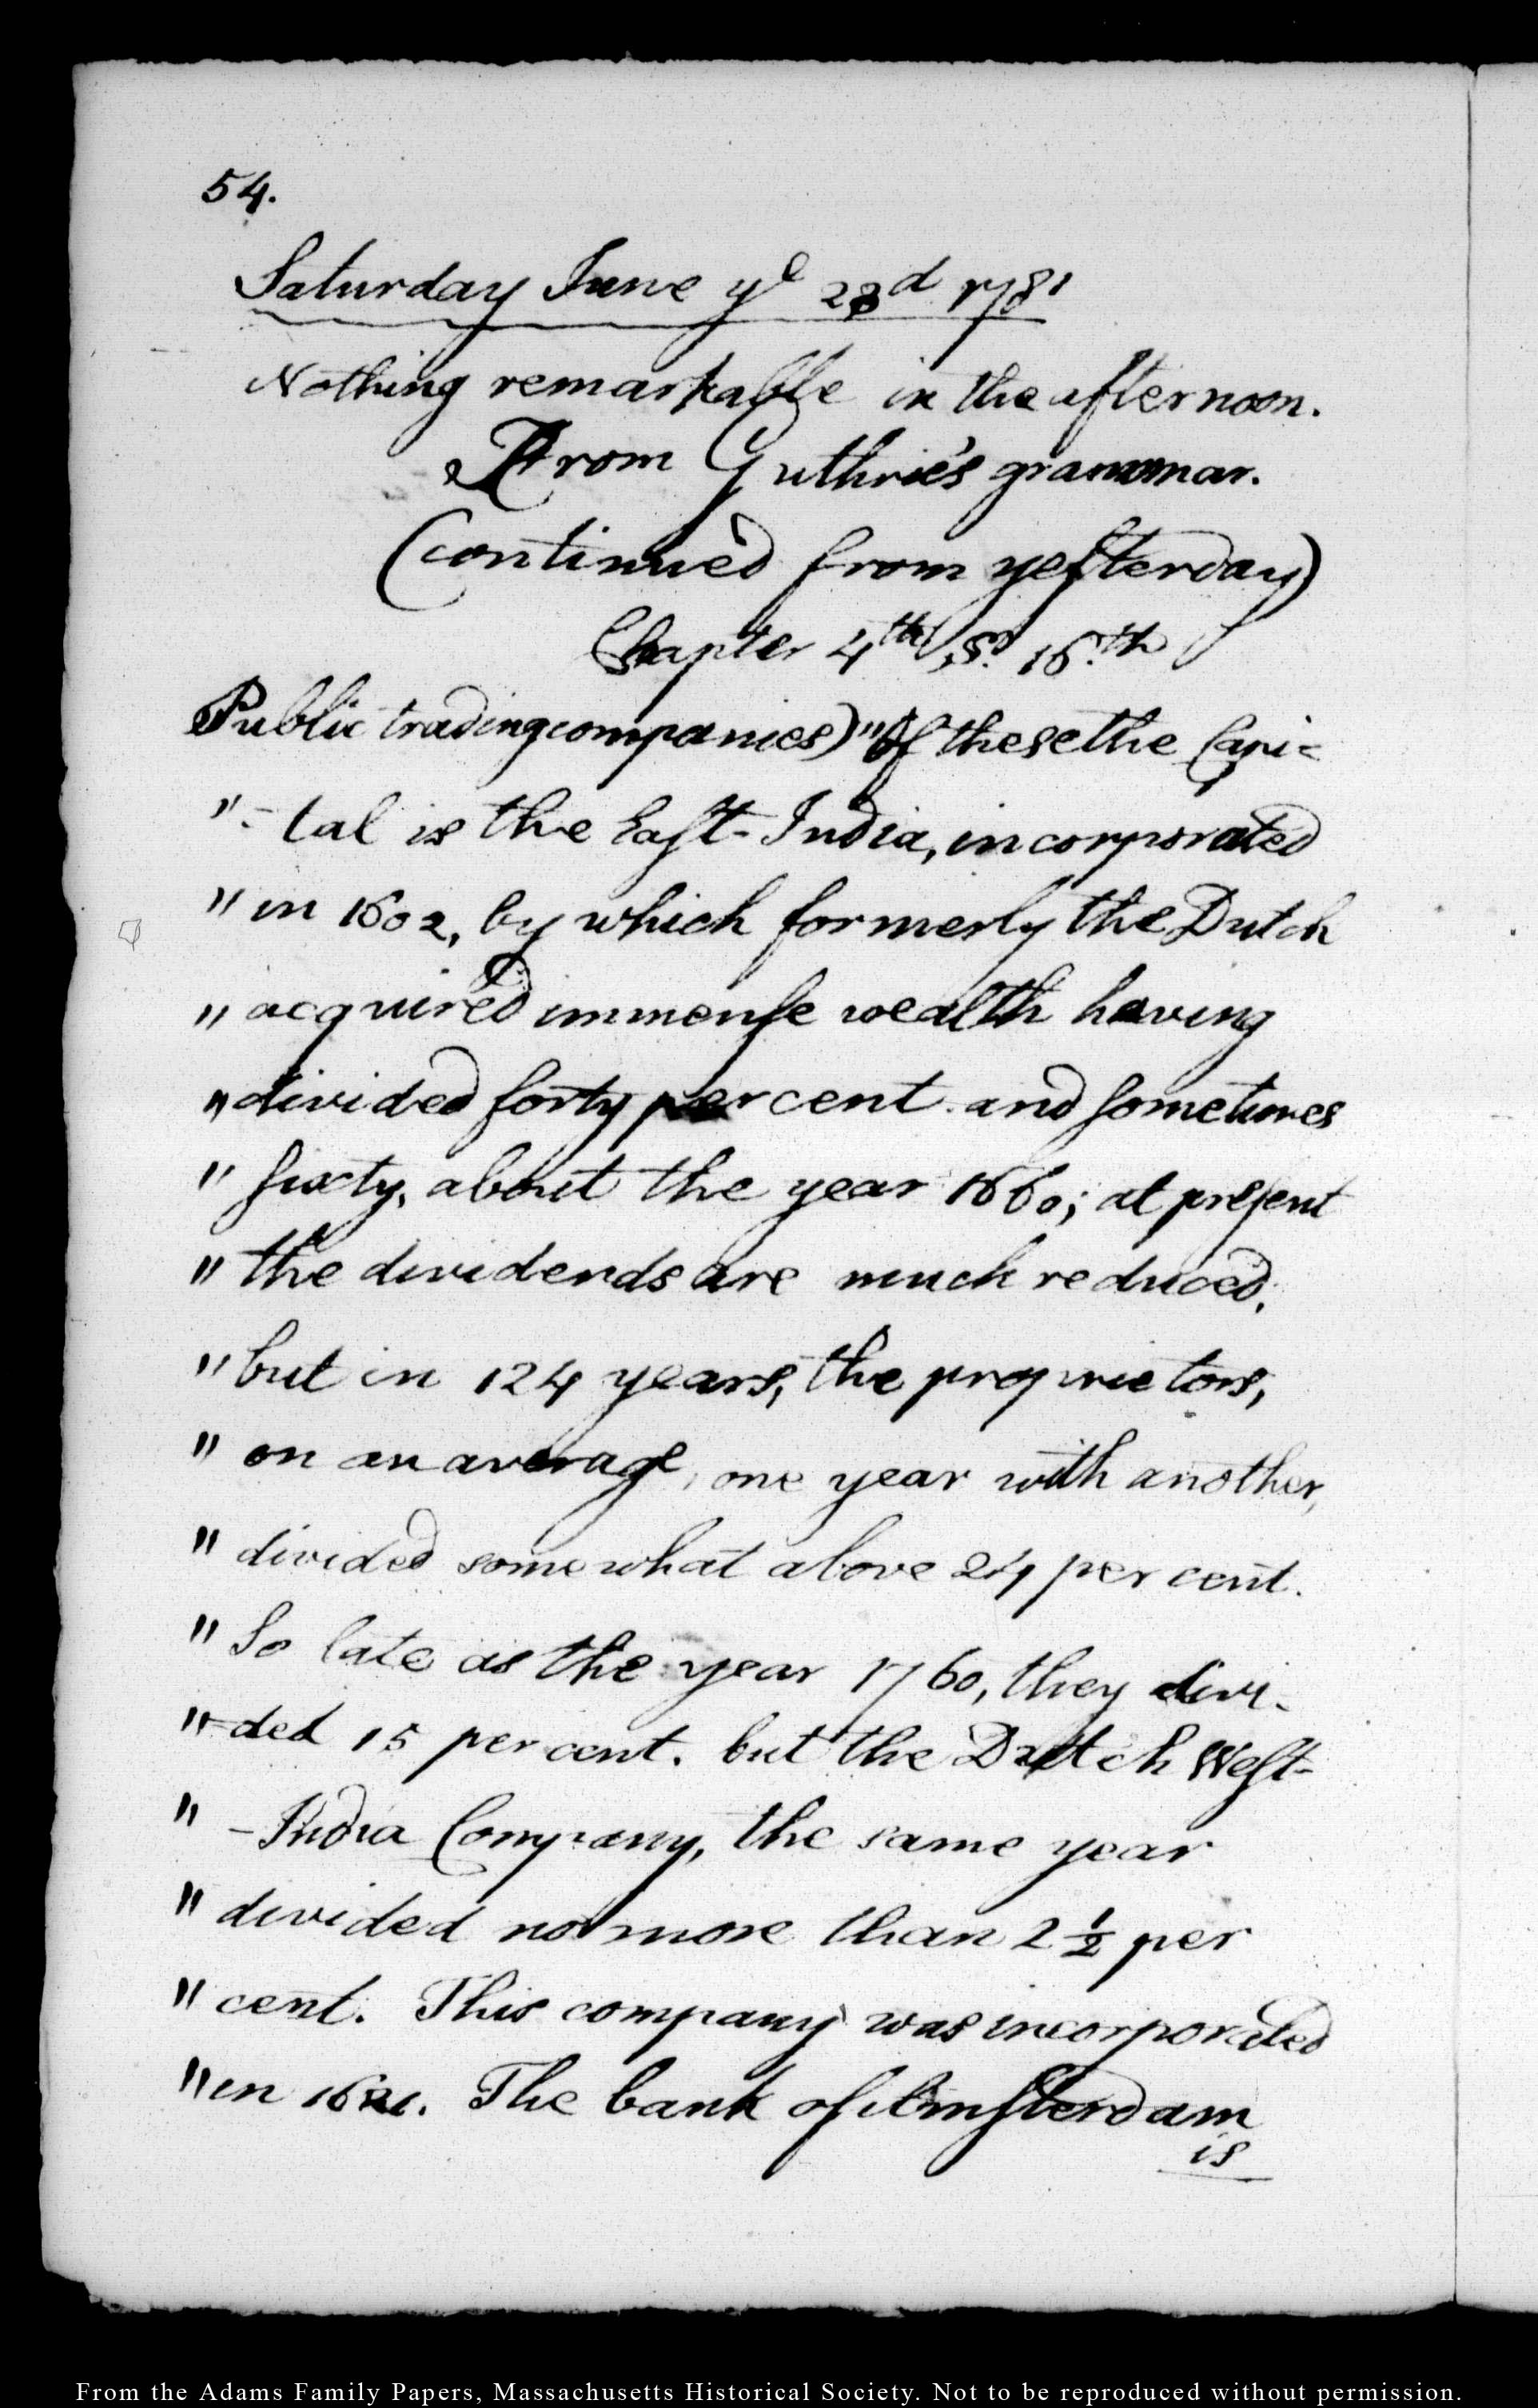 54.
Saturday June ye 23d 1781
Nothing remarkable in the afternoon.
From Guthrie's grammar.
(continued from yesterday)
Chapter 4th, S. 16th
Public trading companies) "Of these the Capi-
"- tal is the East-India, incorporated
" in 1602, by which formerly the Dutch
" acquired immense wealth having
" divided forty per cent and sometimes
" sixty, about the year 1660; at present
" the dividends are much reduced,
" but in 124 years, the proprietors,
" on an average, one year with another,
" divided somewhat above 24 per cent.
" So late as the year 1760, they divi-
"-ded 15 per cent. but the Dutch West-
" -India Company, the same year
" divided no more than 2 ½ per
" cent. This company was incorporated
" in 1621. The bank of Amsterdam
is
From the Adams Family Papers, Massachusetts Historical Society. Not to be reproduced without permission.